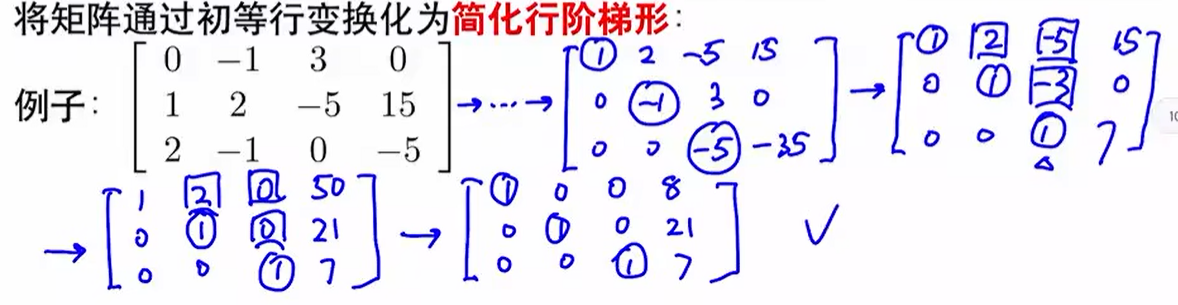 将矩阵通过初等行变换化为简化行阶梯形：
例子：
0 −1 3 0
1 2 −5 15
2 −1 0 −5
→···→
1 2 -5 15
0 -1 3 0
0 0 -5 -35
→
1 2 -5 15
0 1 -3 0
0 0 1 7
→
1 2 0 50
0 1 0 21
0 0 1 7
→
1 0 0 8
0 1 0 21
0 0 1 7
✓
10